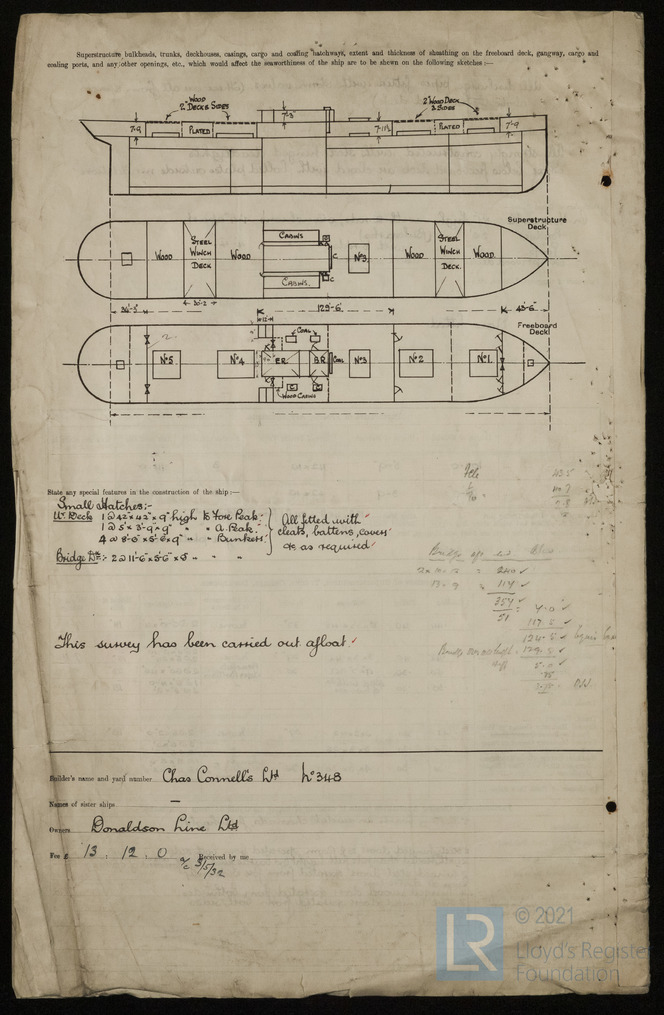 Superstructure bulkheads, trunks, deckhouses, casings, cargo and coaling hatchways, extent and thickness of sheathing on the freeboard deck, gangway, cargo and
coaling ports, and any other openings, etc., which would affect the seaworthiness of the ship are to be shewn on the following sketches:—
WOOD
2" DECK & SIDES
7'-3"
2" WOOD DECK
& SIDES
7'-9
PLATED
7'-11½
PLATED
7'-9
Superstructure
Deck
CABINS
WOOD
STEEL
WINCH
DECK
WOOD
Nº3.
STEEL
WINCH
DECK.
WOOD.
C
CABINS.
C
30'-2"
129'-6"
43'-6"
Freeboard
Deck
COAL
Nº5
Nº4
E.R.
B.R.
COAL
Nº3
Nº2
Nº1.
C
C
WOOD CABINS
State any special features in the construction of the ship:—
Small Hatches:-
Ur. Deck 1 @ 42" x 42" x 9" high to Fore Peak.
1 @ 5" x 3'-9" x 9" " " A. Peak.
4 @ 8'-3" x 5'-6 x 9" " " Bunkers
All fitted with
cleats, battens, covers
&c as required
Bridge Dk:- 2 @ 11'-6" x 5'-6" x 5" " "
Bridge
240
114
354
51
This survey has been carried out afloat.
Builder's name and yard number Chas Connell's Ltd Nº 348
Names of sister ships —
Owners Donaldson Line Ltd
Fee £ 13 . 12 . 0 Received by me
3/5/32
LR
© 2021
Lloyd's Register
Foundation